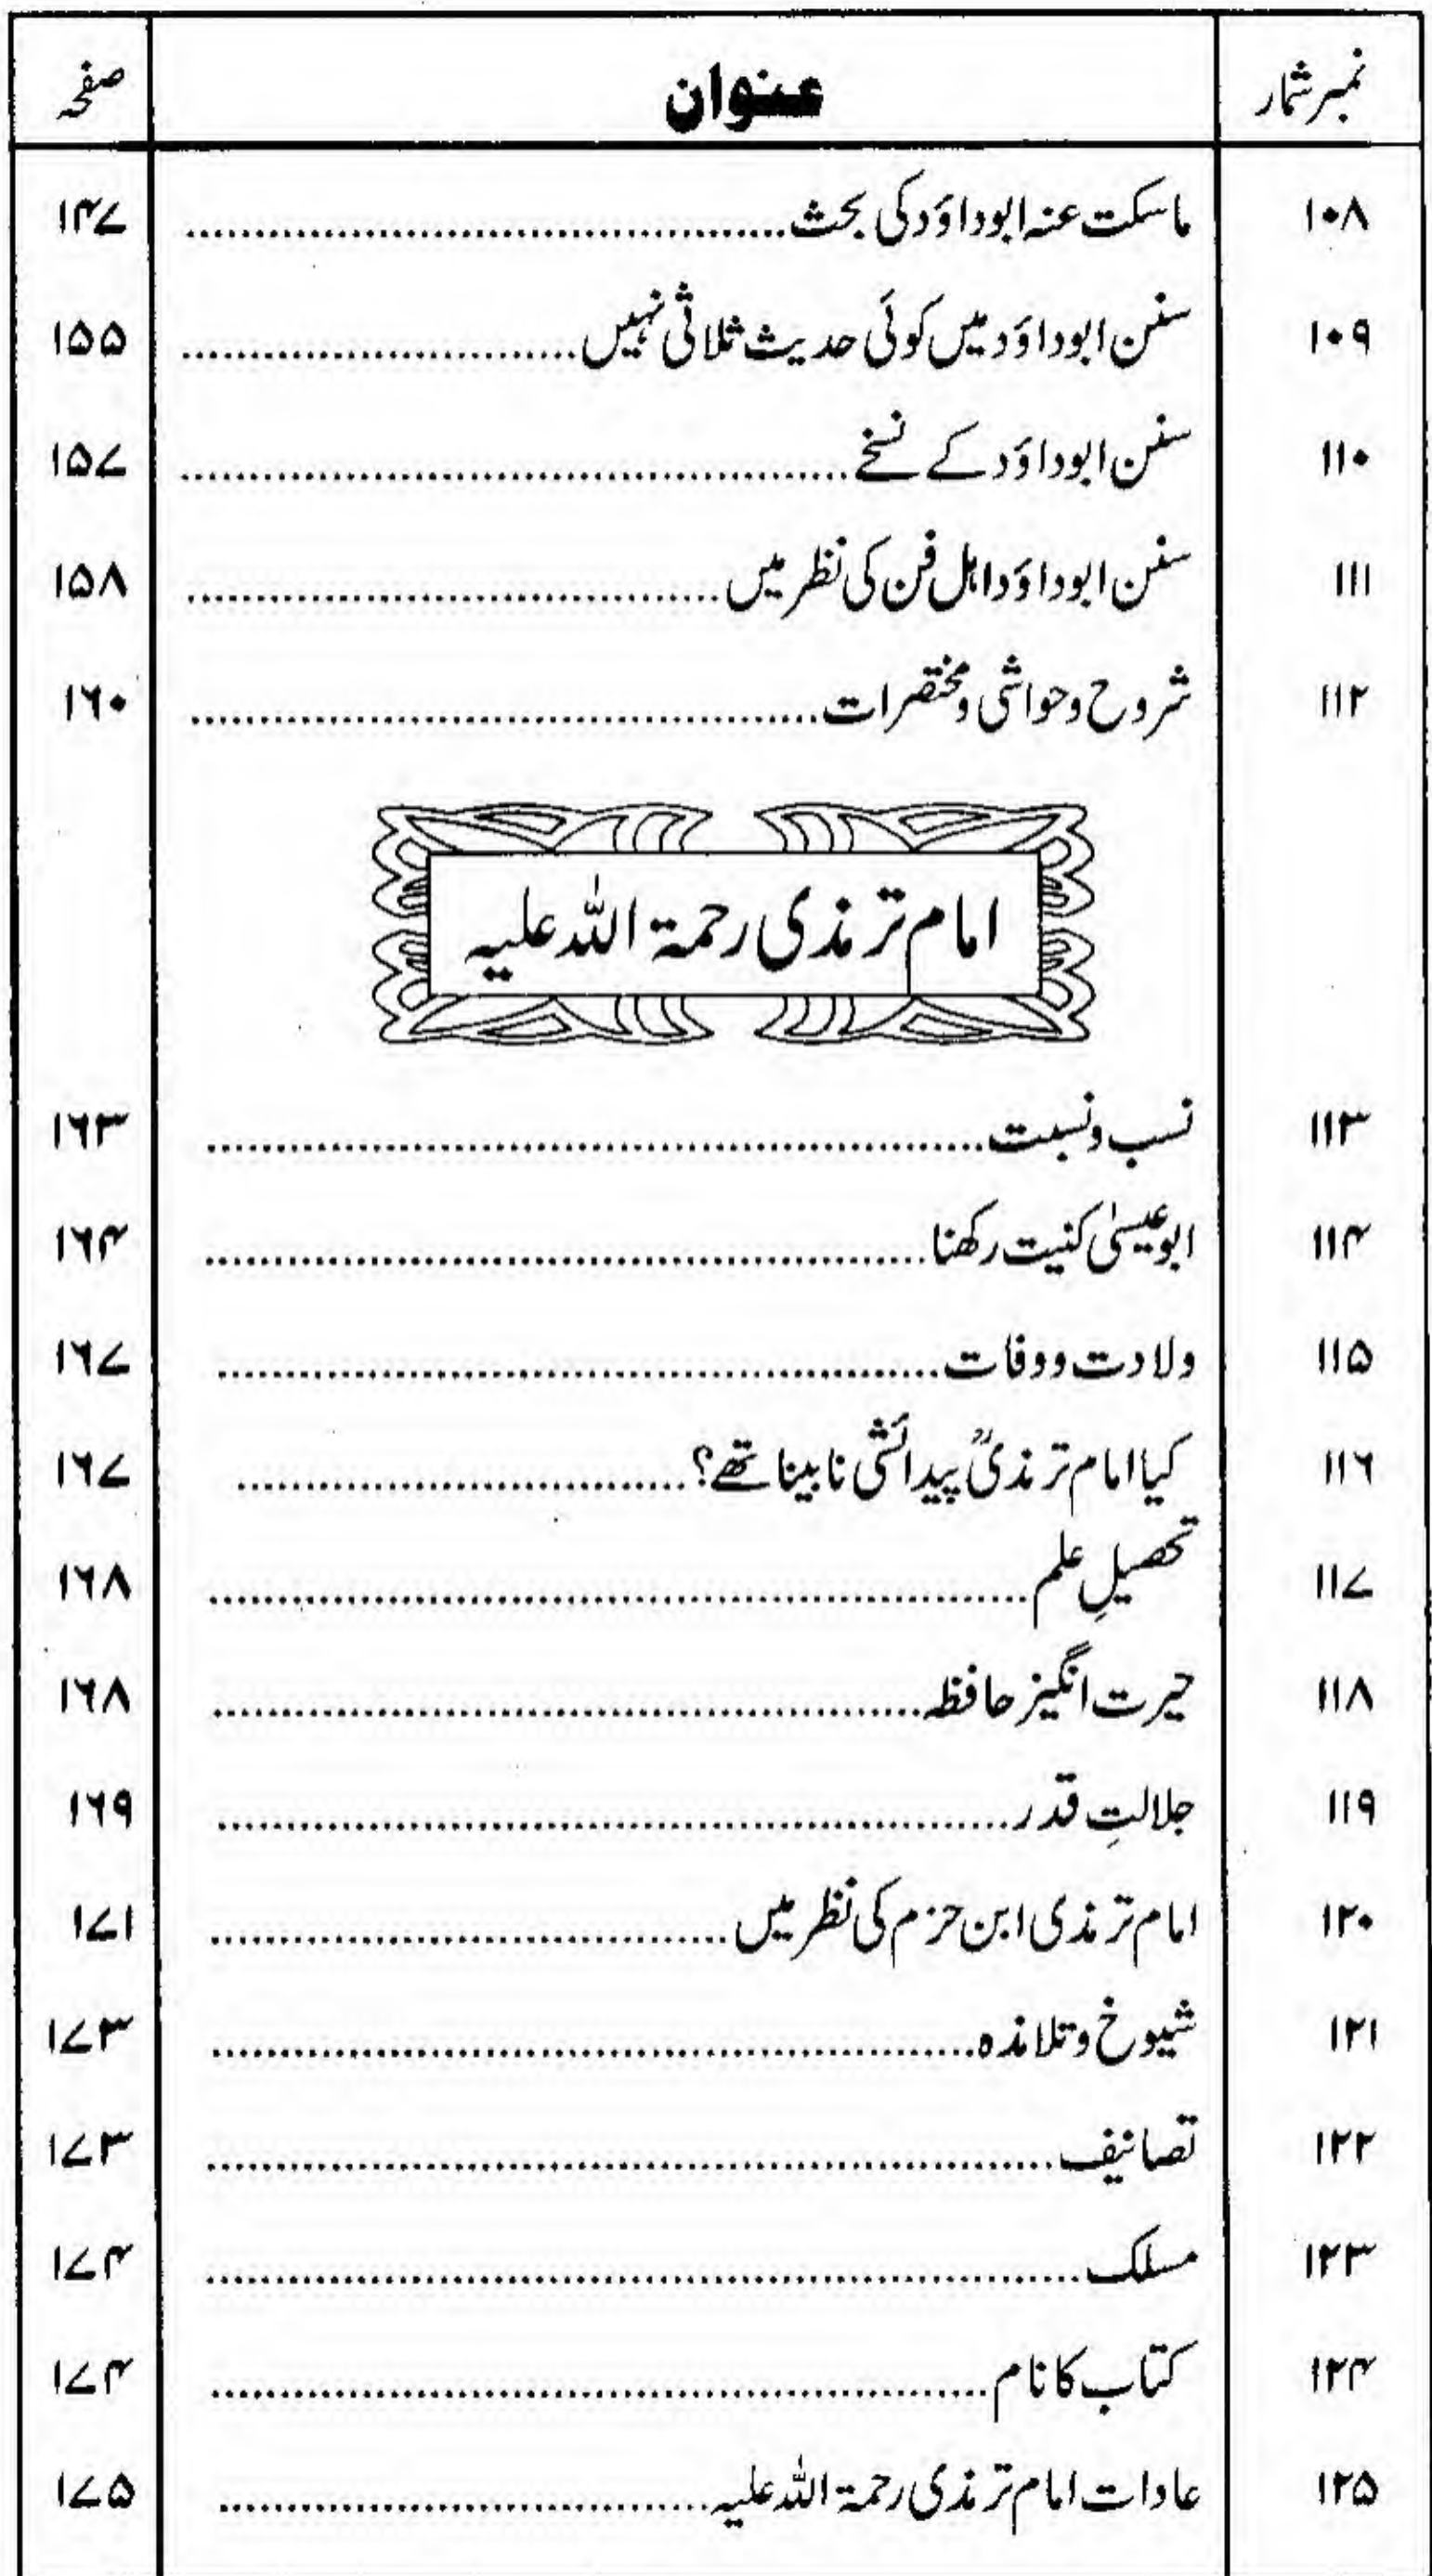 نمبر شمار عنوان صفحہ
۱۰۸ ما سکت عنہ ابوداؤد کی بحث ۱۴۷
۱۰۹ سنن ابوداؤد میں کوئی حدیث ثلاثی نہیں ۱۵۵
۱۱۰ سنن ابوداؤد کے نسخے ۱۵۷
۱۱۱ سنن ابوداؤد اہل فن کی نظر میں ۱۵۸
۱۱۲ شروح و حواشی و مختصرات ۱۶۰
امام ترمذی رحمۃ اللہ علیہ
۱۱۳ نسب و نسبت ۱۶۳
۱۱۴ ابو عیسیٰ کنیت رکھنا ۱۶۴
۱۱۵ ولادت و وفات ۱۶۷
۱۱۶ کیا امام ترمذیؒ پیدائشی نابینا تھے؟ ۱۶۷
۱۱۷ تحصیلِ علم ۱۶۸
۱۱۸ حیرت انگیز حافظہ ۱۶۸
۱۱۹ جلالتِ قدر ۱۶۹
۱۲۰ امام ترمذی ابن حزم کی نظر میں ۱۷۱
۱۲۱ شیوخ و تلامذہ ۱۷۳
۱۲۲ تصانیف ۱۷۳
۱۲۳ مسلک ۱۷۴
۱۲۴ کتاب کا نام ۱۷۴
۱۲۵ عادات امام ترمذی رحمۃ اللہ علیہ ۱۷۵